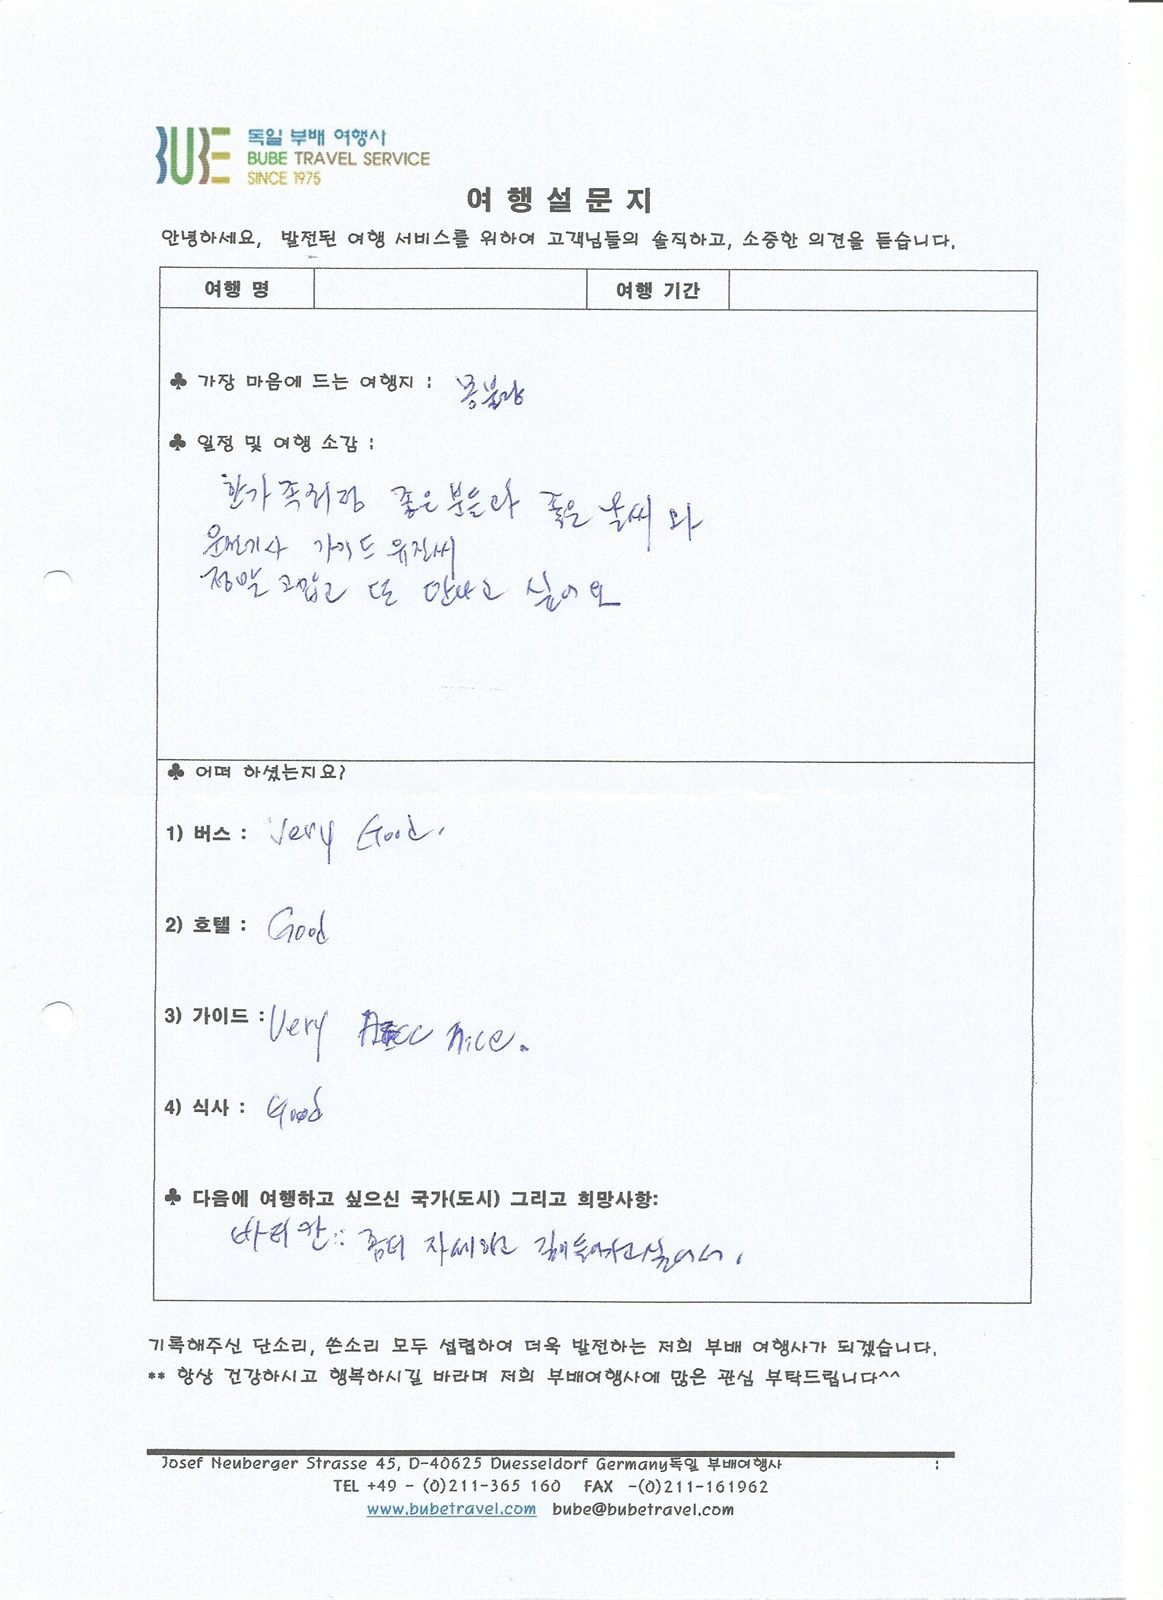 BUBE 독일 부배 여행사
BUBE TRAVEL SERVICE
SINCE 1975
여 행 설 문 지
안녕하세요, 발전된 여행 서비스를 위하여 고객님들의 솔직하고, 소중한 의견을 듣습니다.
여행 명 여행 기간
♣ 가장 마음에 드는 여행지 : 몽블랑
♣ 일정 및 여행 소감 :
한가족처럼 좋은 분들과 좋은 날씨와
운전기사 가이드 유진씨
정말 고맙고 또 만나고 싶어요
♣ 어떠 하셨는지요?
1) 버스 : Very Good.
2) 호텔 : Good
3) 가이드 : Very nice.
4) 식사 : Good
♣ 다음에 여행하고 싶으신 국가(도시) 그리고 희망사항:
바티칸 : 좀더 자세하고 싶어서.
기록해주신 단소리, 쓴소리 모두 섭렵하여 더욱 발전하는 저희 부배 여행사가 되겠습니다.
** 항상 건강하시고 행복하시길 바라며 저희 부배여행사에 많은 관심 부탁드립니다^^
Josef Neuberger Strasse 45, D-40625 Duesseldorf Germany독일 부배여행사 :
TEL +49 - (0)211-365 160 FAX -(0)211-161962
www.bubetravel.com bube@bubetravel.com